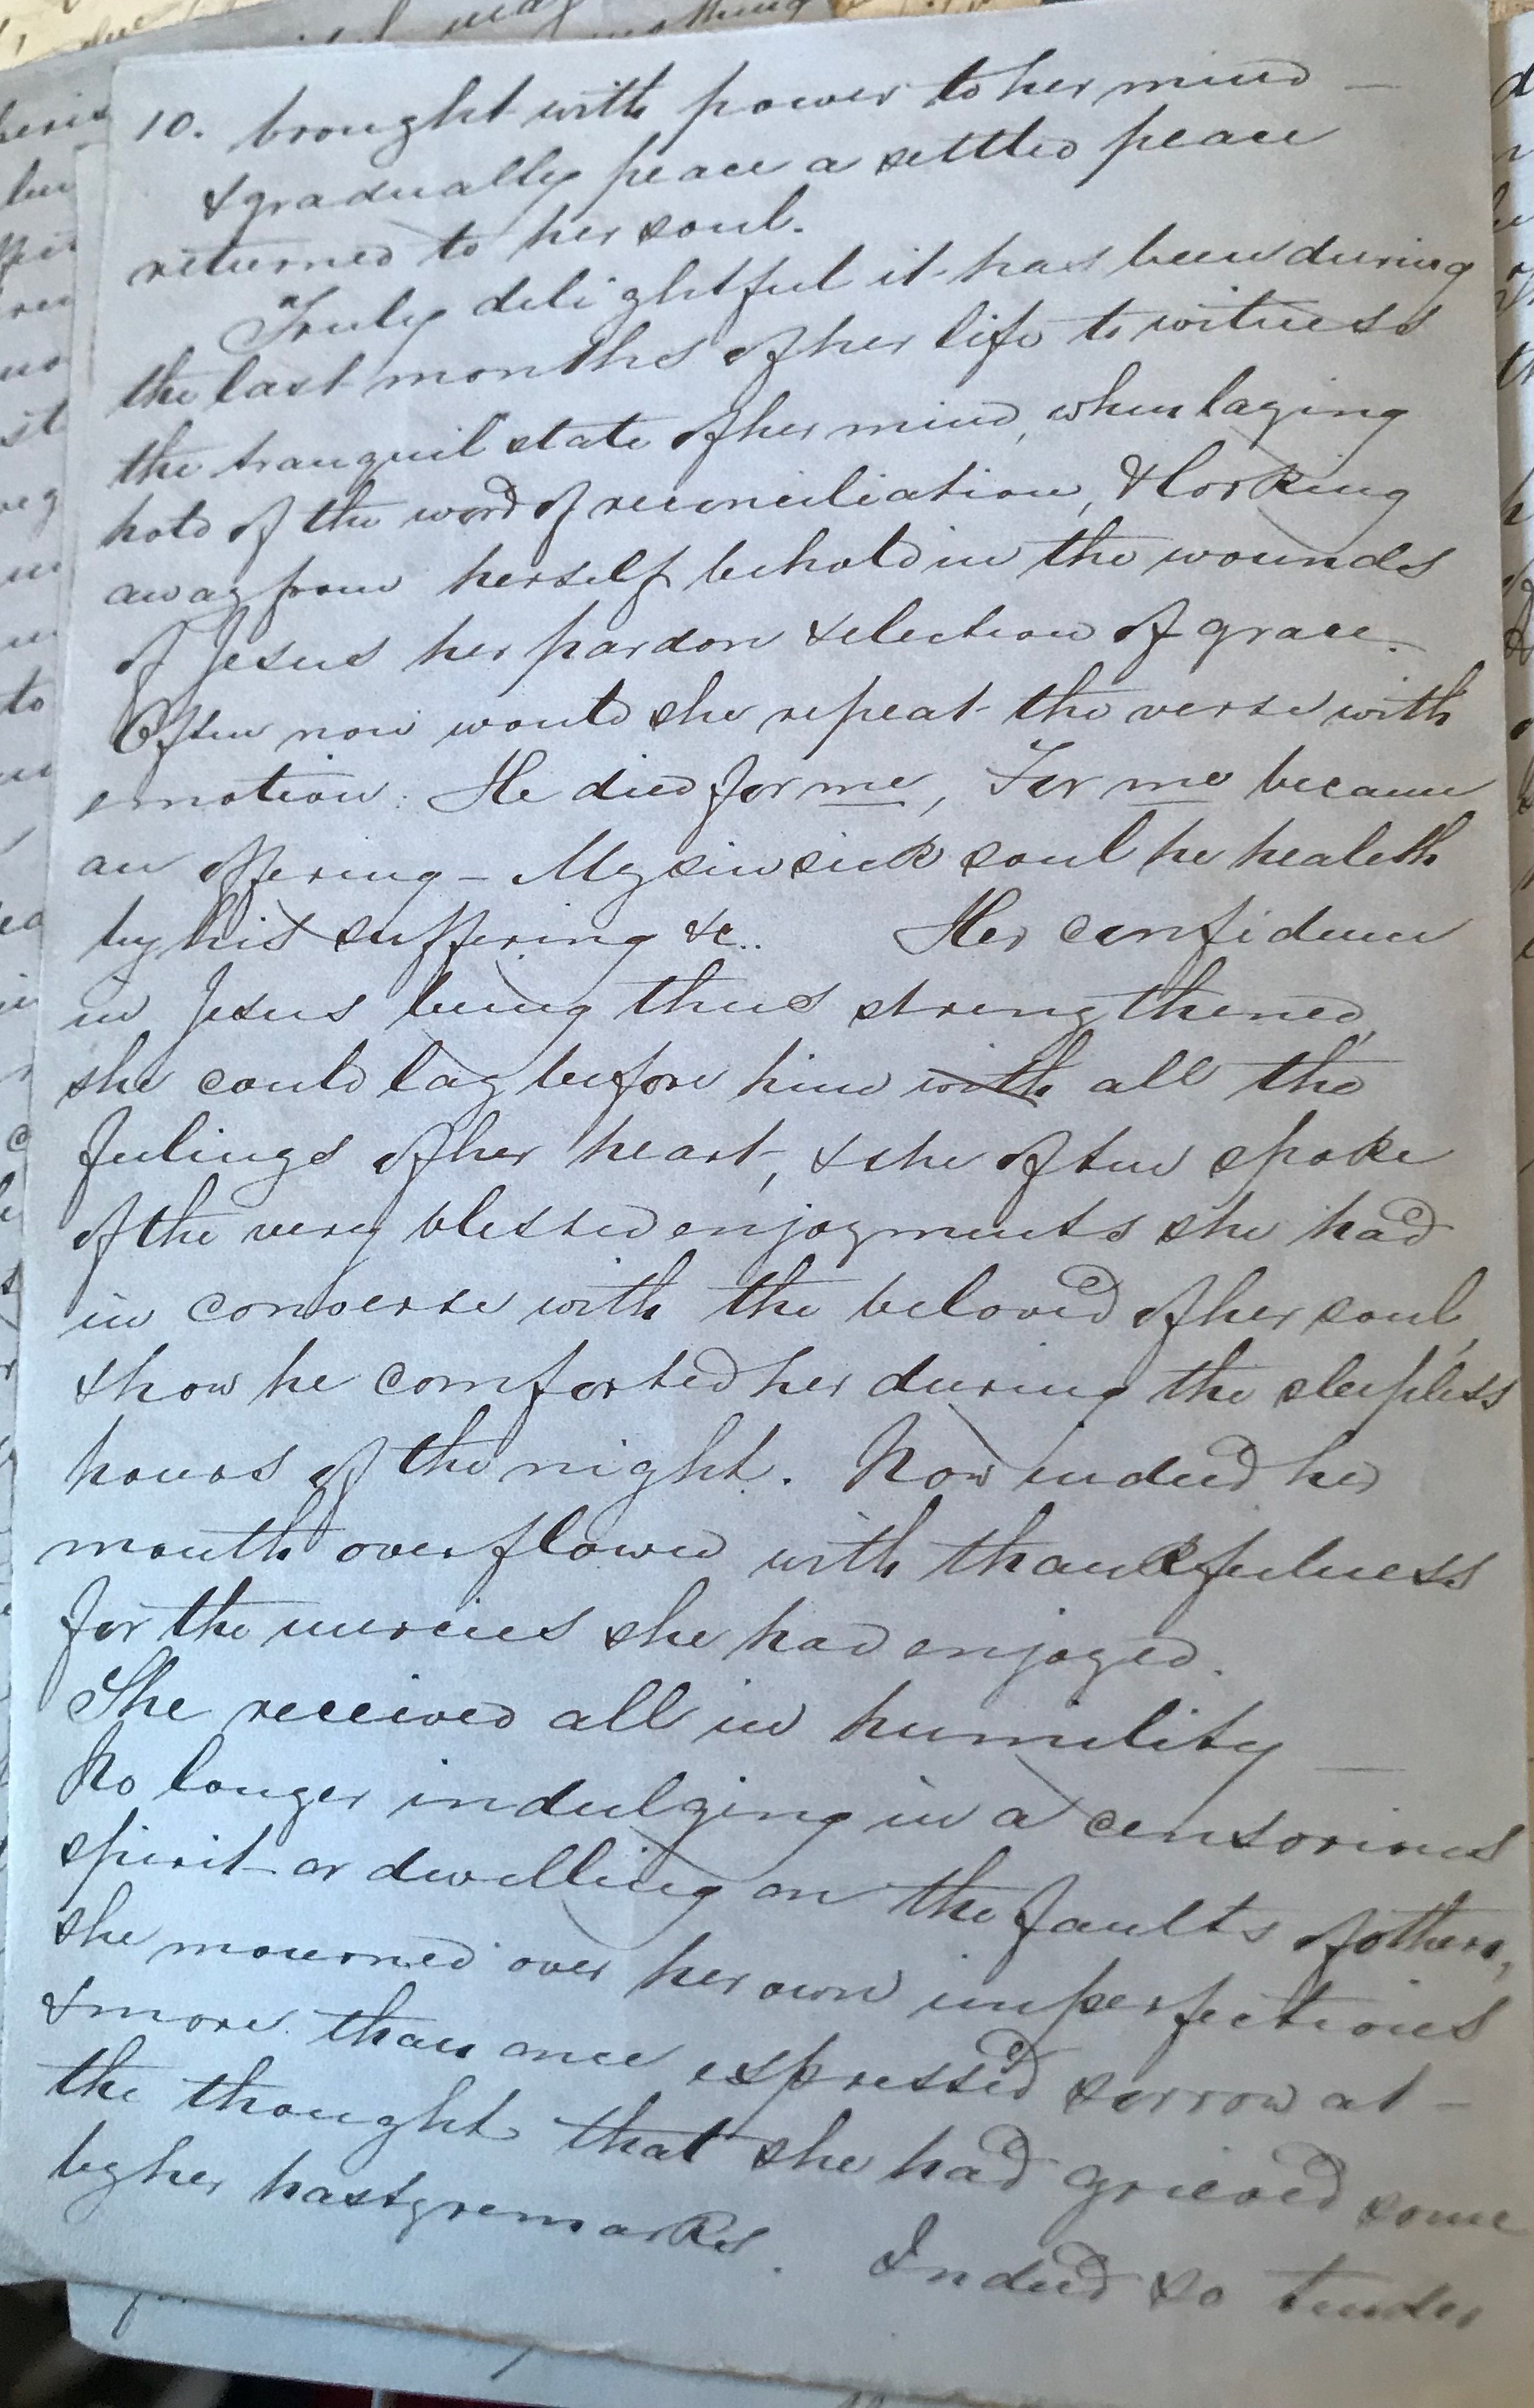 10. brought with power to her mind —
& gradually peace a settled peace
returned to her soul.
Truly delightful it has been during
the last months of her life to witness
the tranquil state of her mind, when laying
hold of the word of reconciliation, & looking
away from herself behold in the wounds
of Jesus her pardon & election of grace.
Often now would she repeat the verse with
emotion: He died for me, For me became
an offering – My sin sick soul he healeth
by his suffering &c.. Her confidence
in Jesus being thus strengthened,
she could lay before him with all the
feelings of her heart, & she often spoke
of the very blessed enjoyments she had
in converse with the beloved of her soul,
& how he comforted her during the sleepless
hours of the night. Now indeed her
mouth overflowed with thankfulness
for the mercies she had enjoyed.
She received all in humility —
No longer indulging in a censorious
spirit or dwelling on the faults of others,
she mourned over her own imperfections
& more than once expressed sorrow at –
the thought that she had grieved some
by her hasty remarks. Indeed so tender